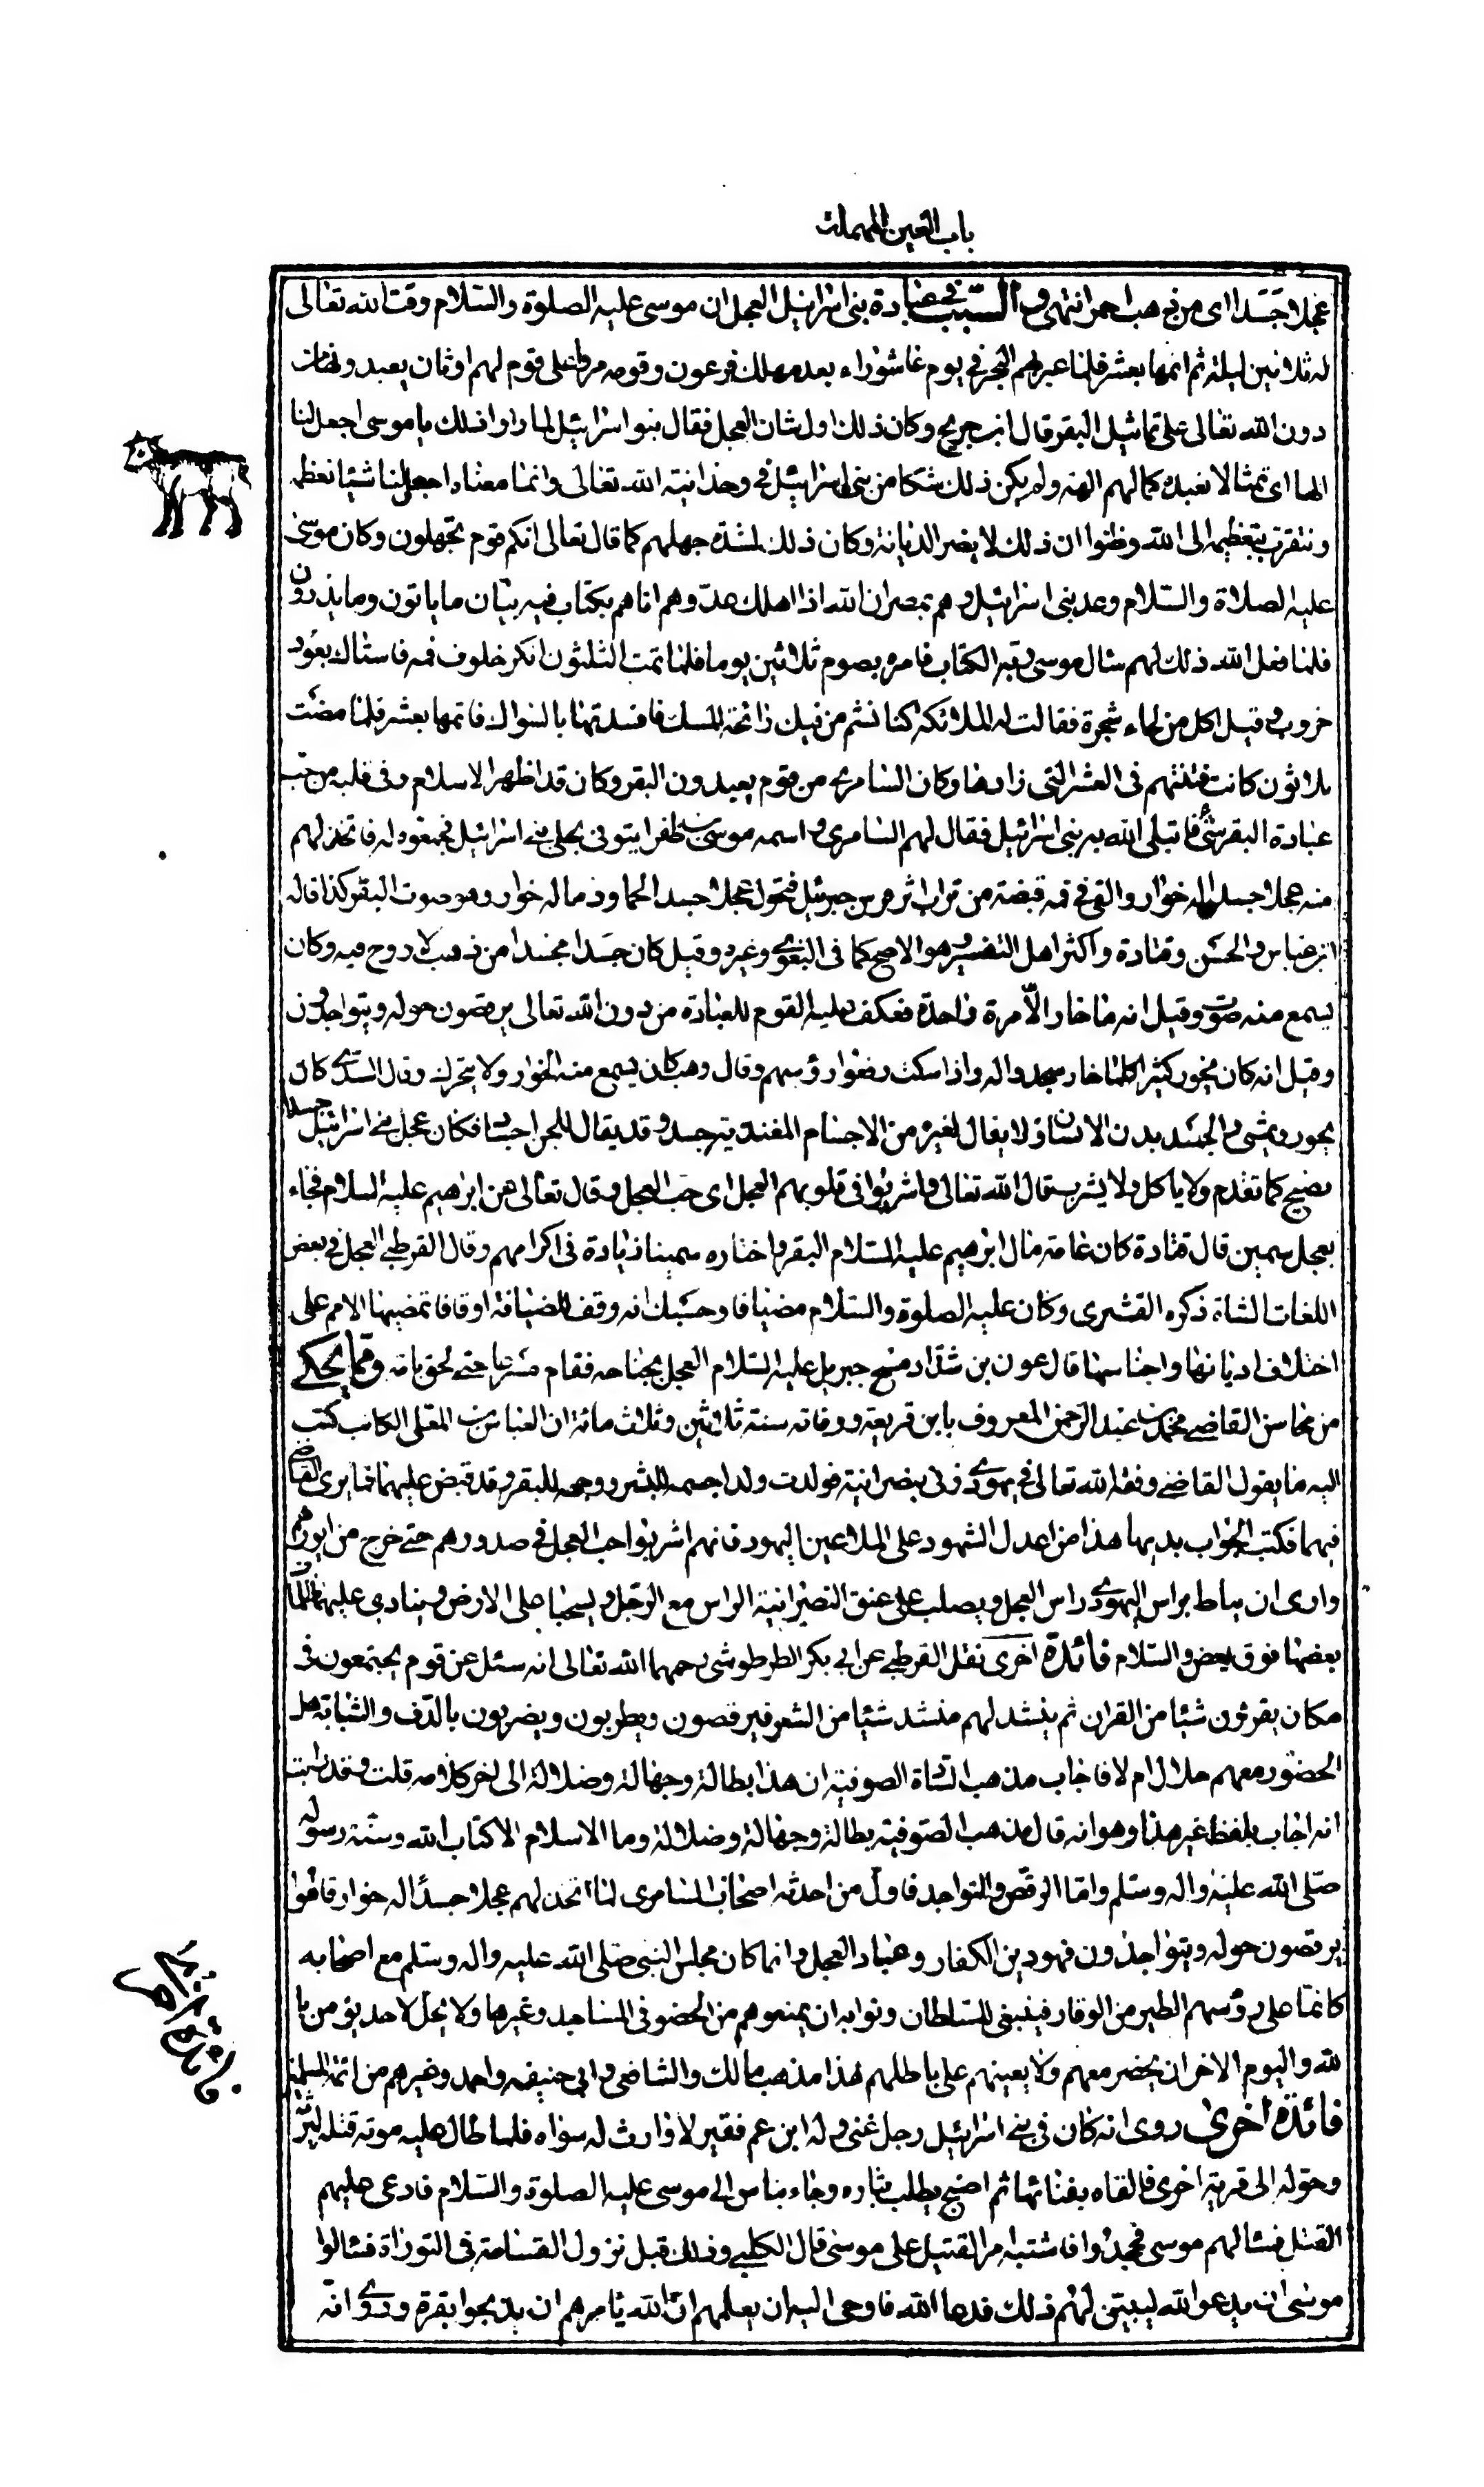 باب العين المهملة
عجلا جسدا اى من ذهب احمر انتهى و السبب فى عبادة بنى اسرائيل العجل ان موسى عليه الصلوة والسلام وقت الله تعالى
له ثلاثين ليلة ثم اتمها بعشر فلما عبر بهم البحر فى يوم عاشوراء بعد مهلك فرعون وقومه مروا على قوم لهم اوثان يعبدونها من
دون الله تعالى على تماثيل البقر قال ابن جريج وكان ذلك اول شان العجل فقال بنو اسرائيل لما راوا ذلك يا موسى اجعل لنا
الها اى تمثالا نعبده كما لهم الهة ولم يكن ذلك شكا من بنى اسرائيل فى وحدانية الله تعالى وانما معناه اجعل لنا شيئا نعظمه
ونتقرب بتعظيمه الى الله وظنوا ان ذلك لا يضر الديانة وكان ذلك لشدة جهلهم كما قال تعالى انكم قوم تجهلون وكان موسى
عليه الصلاة والسلام وعد بنى اسرائيل وهم بمصر ان الله اذا اهلك عدوهم اتاهم بكتاب فيه بيان ما ياتون وما يذرون
فلما فعل الله ذلك لهم سال موسى ربه الكتاب فامره بصوم ثلاثين يوما فلما تمت الثلثون انكر خلوف فمه فاستاك بعود
خروب وقيل اكل من لحاء شجرة فقالت له الملائكة كنا نشم من فيك رائحة المسك فافسدتها بالسواك فاتمها بعشر فلما مضت
ثلاثون كانت فتنتهم فى العشر التى زادها وكان السامرى من قوم يعبدون البقر وكان قد اظهر الاسلام وفى قلبه من حب
عبادة البقر شئ فابتلى الله به بنى اسرائيل فقال لهم السامرى و اسمه موسى بن ظفر ايتونى بحلى بنى اسرائيل فجمعوه له فاتخذ لهم
منه عجلا جسدا له خوار والقى فى فمه قبضة من تراب اثر فرس جبرئيل فتحول عجلا جسدا لحما ودما له خوار وهو صوت البقر كذا قاله
ابن عباس والحسن وقتادة واكثر اهل التفسير وهو الاصح كما فى البغوى وغيره وقيل كان جسدا مجسدا من ذهب لا روح فيه وكان
يسمع منه صوت وقيل انه ما خار الا مرة واحدة فعكف عليه القوم للعبادة من دون الله تعالى يرقصون حوله ويتواجدون
وقيل انه كان يخور كثيرا كلما خار سجدوا له واذا سكت رفعوا رؤسهم وقال وهب كان يسمع منه الخوار ولا يتحرك وقال السدى كان
يخور ويمشى والجسد بدن الانسان ولا يقال لغيره من الاجسام المغتذية جسد وقد يقال للجن اجساد فكان عجل بنى اسرائيل جسدا
يصيح كما تقدم ولا ياكل ولا يشرب قال الله تعالى واشربوا فى قلوبهم العجل اى حب العجل وقال تعالى عن ابراهيم عليه السلام فجاء
بعجل سمين قال قتادة كان عامة مال ابرهيم عليه السلام البقر واختاره سمينا زيادة فى اكرامهم وقال القرطبى العجل فى بعض
اللغات الشاة ذكره القشيرى وكان عليه الصلوة والسلام مضيافا وحسبك انه وقف للضيافة اوقافا تمضيها الامم على
اختلاف اديانها واجناسها قال عون بن شداد مسح جبريل عليه السلام العجل بجناحه فقام مسرعا حتى لحق بامه ومما يحكى
من محاسن القاضى محمد بن عبد الرحمن المعروف بابن قريعة ووفاته سنة ثلاثين وثلاث مائة ان العباس بن المعلى الكاتب كتب
اليه ما يقول القاضى وفقه الله تعالى فى يهودى زنى بنصرانية فولدت ولدا جسمه للبشر ووجهه للبقر وقد قبض عليهما فما يرى القاضى
فيهما فكتب الجواب بديها هذا من اعدل الشهود على الملاعين اليهود فانهم اشربوا حب العجل فى صدورهم حتى خرج من ايورهم
وارى ان يناط براس اليهودى راس العجل ويصلب على عنق النصرانية الراس مع الرجل ويسحبا على الارض وينادى عليهما ظلمات
بعضها فوق بعض والسلام فائدة اخرى نقل القرطبى عن ابى بكر الطرطوشى رحمهما الله تعالى انه سئل عن قوم يجتمعون فى
مكان يقرؤن شيئا من القران ثم ينشد لهم منشد شيئا من الشعر فيرقصون ويطربون ويضربون بالدف والشبابة هل
الحضور معهم حلال ام لا فاجاب مذهب السادة الصوفية ان هذا بطالة وجهالة وضلالة الى اخر كلامه قلت وقد رايت
انه اجاب بلفظ غير هذا وهو انه قال مذهب الصوفية بطالة وجهالة وضلالة وما الاسلام الا كتاب الله وسنة رسوله
صلى الله عليه واله وسلم واما الرقص والتواجد فاول من احدثه اصحاب السامرى لما اتخذ لهم عجلا جسدا له خوار قاموا
يرقصون حوله ويتواجدون فهو دين الكفار وعباد العجل وانما كان مجلس النبى صلى الله عليه واله وسلم مع اصحابه
كانما على رؤسهم الطير من الوقار فينبغى للسلطان ونوابه ان يمنعوهم من الحضور فى المساجد وغيرها ولا يحل لاحد يؤمن با
لله واليوم الاخر ان يحضر معهم ولا يعينهم على باطلهم هذا مذهب مالك والشافعى وابى حنيفه واحمد وغيرهم من ائمة المسلمين
فائدة اخرى روى انه كان فى بنى اسرائيل رجل غنى وله ابن عم فقير لا وارث له سواه فلما طال عليه موته قتله ليرثه
وحوله الى قرية اخرى فالقاه بفنائها ثم اصبح يطلب بثاره وجاء بناس الى موسى عليه الصلوة والسلام فادعى عليهم
القتل فسالهم موسى فجحدوا فاشتبه امر القتيل على موسى قال الكلبى وذلك قبل نزول القسامة فى التوراة فسالوا
موسى ان يدعو الله ليبين لهم ذلك فدعا الله فاوحى اليه ان يعلمهم ان الله يامرهم ان يذبحوا بقرة وروى انه